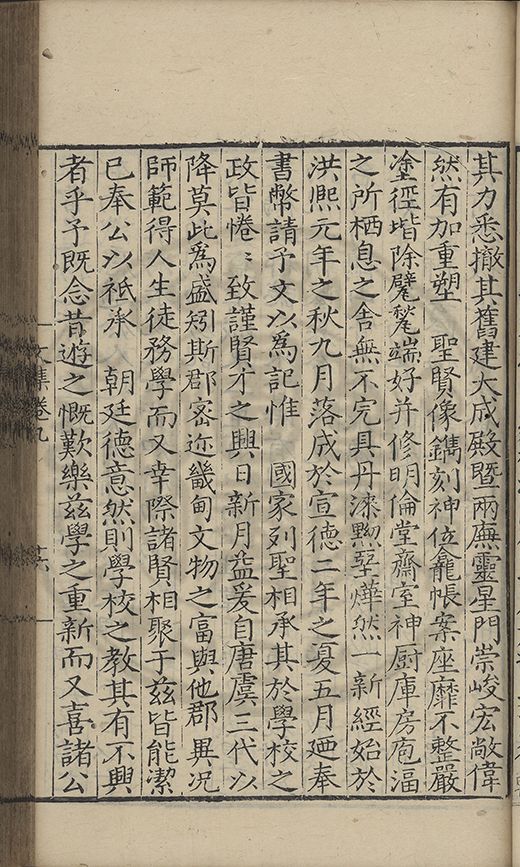 其力悉撤其舊建大成殿暨兩廡靈星門崇峻宏敞偉
然有加重塑　聖賢像鐫刻神位龕帳案座靡不整嚴
塗徑堦除甓甃端好并修明倫堂齋室神厨庫房庖湢
之所栖息之舍無不完具丹漆黝堊燁然一新經始於
洪熙元年之秋九月落成於宣德二年之夏五月廼奉
書幣請予文以為記惟　國家列聖相承其於學校之
政皆惓〻致謹賢才之興日新月益爰自唐虞三代以
降莫此為盛矧斯郡密迩畿甸文物之富與他郡異况
師範得人生徒務學而又幸際諸賢相聚于茲皆能潔
已奉公以祗承　朝廷德意然則學校之教其有不興
者乎予既念昔遊之慨歎樂茲學之重新而又喜諸公
文集卷九